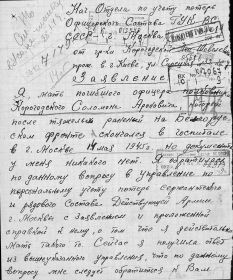 Нач. Отдела по учету потерь
Офицерского Состава ГУК ВС
СССР г. Москва
от гр-ки Корогодской
прож. в г. Киеве, ул.
Заявление
Я мать погибшего офицера
Корогодского Соломона Ароновича, который
после тяжелого ранения на Белорус-
ском фронте скончался в госпитале
в г. Москве мая 1945г. но документов
у меня никакого нет. Я обратилась
по данному вопросу в Управление по
персональному учету потерь Сержантского
и рядового Состава Действующей Армии
г. Москвы с заявлением и приложенной
справкой к нему, о том что я действительно
мать такого то. Сейчас я получила ответ
из вышеуказанного управления, что по данному
вопросу мне следует обратиться к Вам